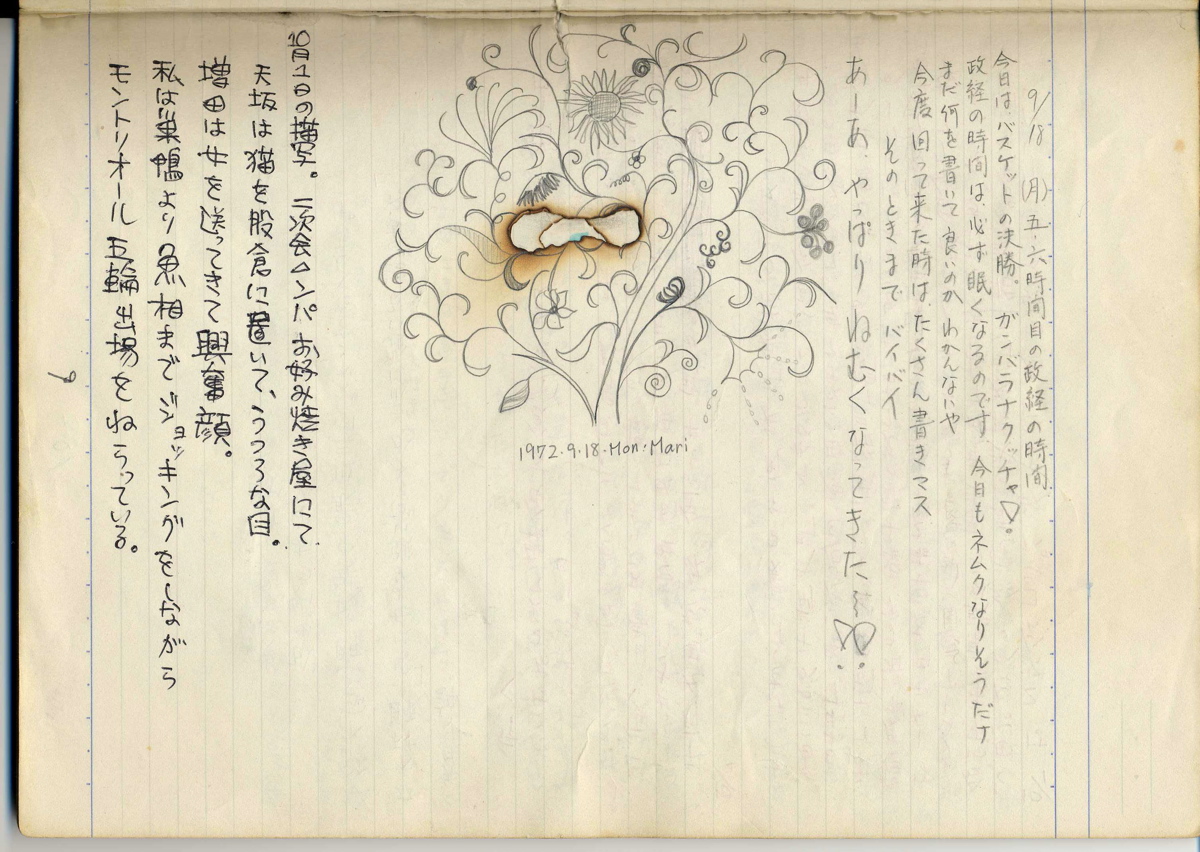 9/18 (月) 五・六時間目の政経の時間
今日は、バスケットの決勝。ガンバラナクッチャ!
政経の時間は、必ず眠くなるのです。今日もネムクなりそうだナ
まだ何を書いて良いのかわかんないや
今度回って来た時は、たくさん書きマス
そのときまでバイバイ
あーあ、やっぱりねむくなってきた…!!
1972.9.18.Mon.Mari
10月1日の描写。二次会コンパ お好み焼き屋にて、
天坂は猫を股倉に置いて、うつろな目。
増田は女を送ってきて興奮顔。
私は巣鴨より魚相までジョッキングをしながら
モントリオール五輪出場をねらっている。